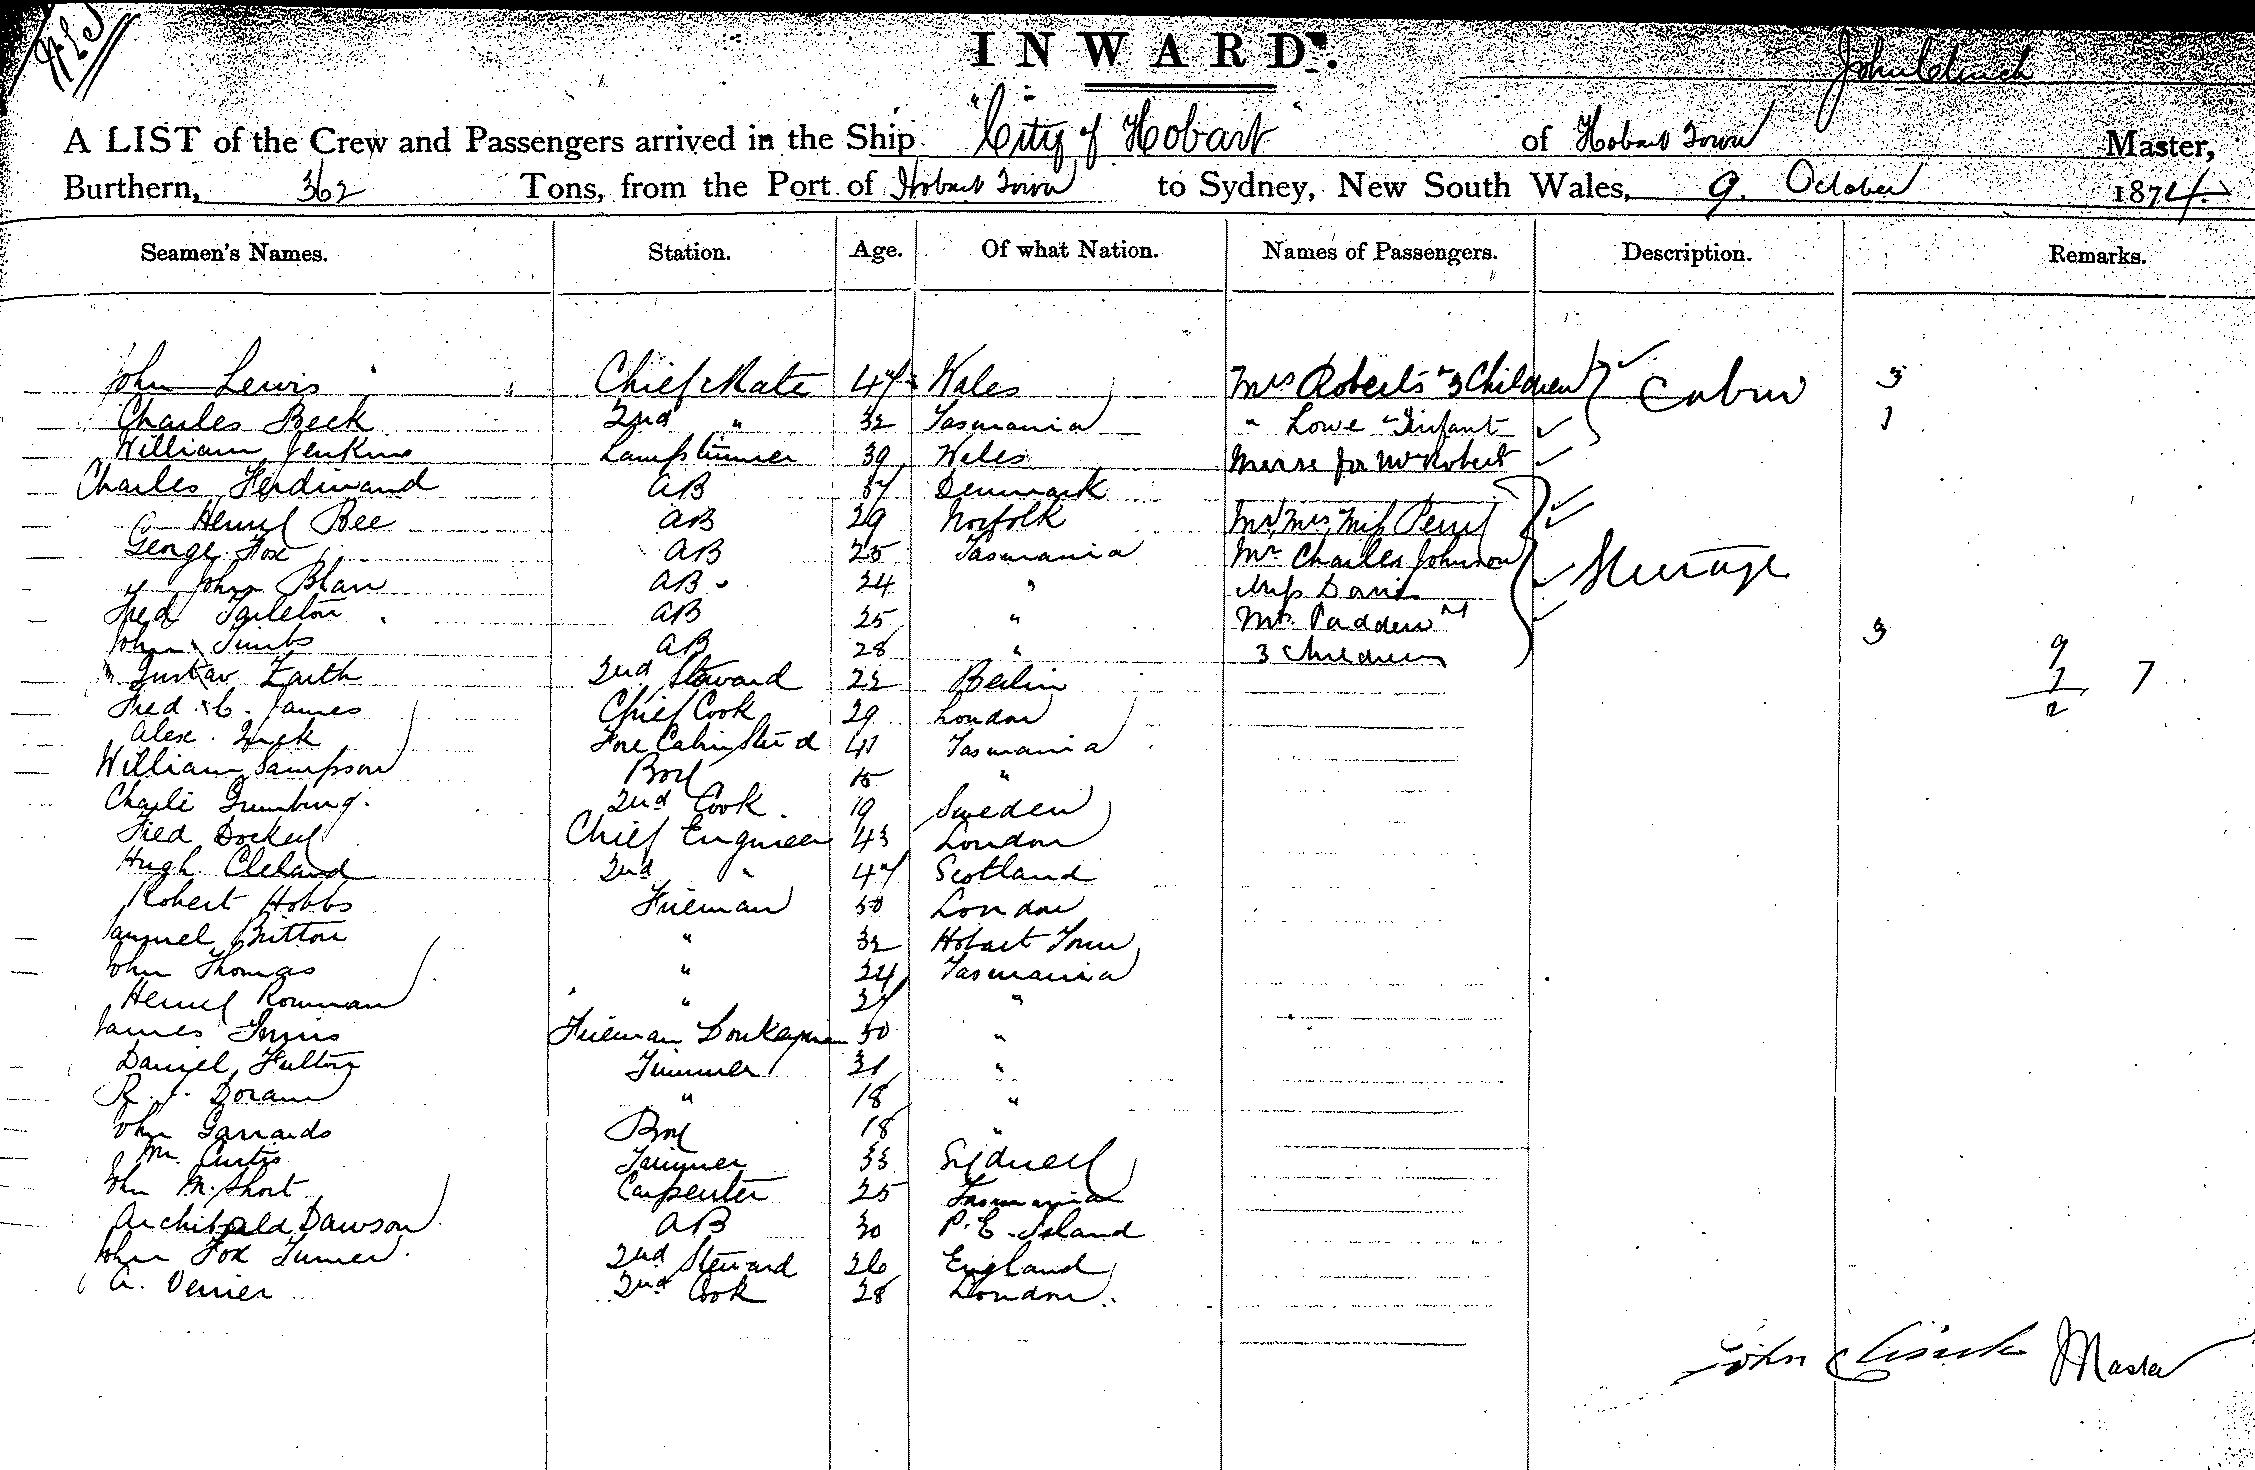 INWARD.
John Clinch
A LIST of the Crew and Passengers arrived in the Ship "City of Hobart" of Hobart Town Master,
Burthern, 362 Tons, from the Port of Hobart Town to Sydney, New South Wales, 9. October 1874.
Seamen's Names. Station. Age. Of what Nation. Names of Passengers. Description. Remarks.
John Lewis Chief Mate 47 Wales Mrs Roberts & 3 Children Cabin 3
Charles Beck 2nd " 32 Tasmania " Lowe & Infant 1
William Jenkins Lamptrimmer 39 Wales Nurse for Mrs Robert
Charles Ferdinand AB 37 Denmark
Henry Bee AB 29 Norfolk Mr, Mrs, Miss
George Fox AB 25 Tasmania Mr Charles Johnson Steerage
John Blair AB 24 " Miss Davis
Fred Tarleton AB 25 " Mrs Padden &
John Timbs AB 28 " 3 Children 3 9
Gustav Zarth 2nd Steward 22 Berlin 7 7
Fred C. James Chief Cook 29 London 2
Alex. Fore Cabin Stew'd 41 Tasmania
William Sampson Boy 15 "
Charli 2nd Cook 19 Sweden
Fred Dockery Chief Engineer 43 London
Hugh Cleland 2nd " 47 Scotland
Robert Hobbs Fireman 50 London
Samuel Britton " 32 Hobart Town
John Thomas " 24 Tasmania
Henry Rowman " 27 "
James Fireman Donkeyman 50 "
Daniel Fulton Trimmer 31 "
R. J. Doran " 18 "
John Garrards Boy 18 "
Wm. Curtis Trimmer 33 Sydney
John M. Short Carpenter 25 Tasmania
Archibald Dawson AB 30 P. E. Island
John Fox Turner 2nd Steward 26 England
A. Verrier 2nd Cook 28 London
John Clinch Master